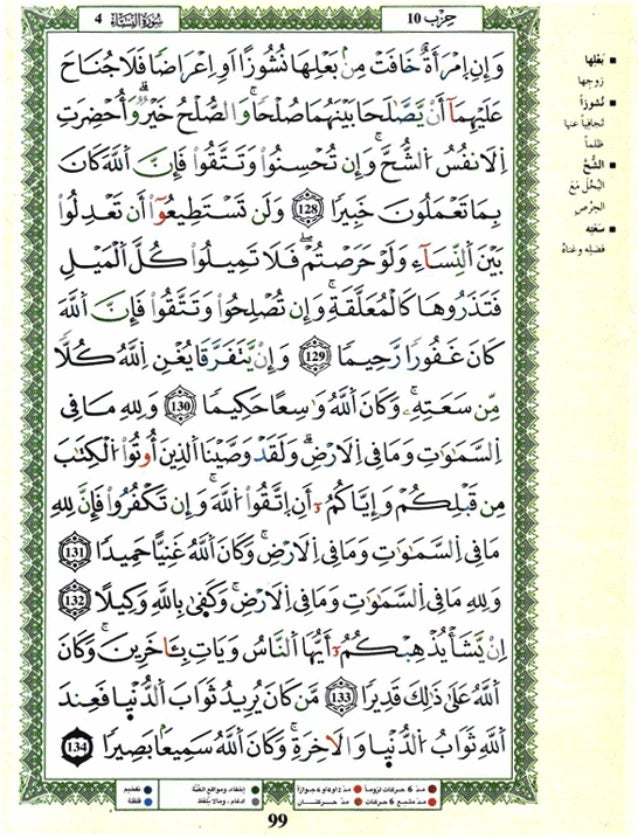 حِزْب 10
سُورَةُ النِّسَاءِ 4
وَإِنِ اِمْرَأَةٌ خَافَتْ مِنۢ بَعْلِهَا نُشُوزًا اَوِ اِعْرَاضًا فَلَا جُنَاحَ
عَلَيْهِمَآ أَنْ يَّصَّٰلَحَا بَيْنَهُمَا صُلْحًاۚ وَالصُّلْحُ خَيْرٌۗ وَأُحْضِرَتِ
اِلَانفُسُ الشُّحَّۚ وَإِن تُحْسِنُواْ وَتَتَّقُواْ فَإِنَّ اَللَّهَ كَانَ
بِمَا تَعْمَلُونَ خَبِيرًا 128 وَلَن تَسْتَطِيعُوٓاْ أَن تَعْدِلُواْ
بَيْنَ اَلنِّسَآءِ وَلَوْ حَرَصْتُمْۖ فَلَا تَمِيلُواْ كُلَّ اَلْمَيْلِ
فَتَذَرُوهَا كَالْمُعَلَّقَةِۚ وَإِن تُصْلِحُواْ وَتَتَّقُواْ فَإِنَّ اَللَّهَ
كَانَ غَفُورًا رَّحِيمًا 129 وَإِنْ يَّتَفَرَّقَا يُغْنِ اِللَّهُ كُلًّا
مِّن سَعَتِهِۦۚ وَكَانَ اَللَّهُ وَٰسِعًا حَكِيمًا 130 وَلِلهِ مَا فِي
اِلسَّمَٰوَٰتِ وَمَا فِي اِلَارْضِۗ وَلَقَدْ وَصَّيْنَا اَلذِينَ أُوتُواْ اُلْكِتَٰبَ
مِن قَبْلِكُمْ وَإِيَّاكُمُۥٓ أَنِ اِتَّقُواْ اُللَّهَۚ وَإِن تَكْفُرُواْ فَإِنَّ لِلهِ
مَا فِي اِلسَّمَٰوَٰتِ وَمَا فِي اِلَارْضِۚ وَكَانَ اَللَّهُ غَنِيًّا حَمِيدًا 131
وَلِلهِ مَا فِي اِلسَّمَٰوَٰتِ وَمَا فِي اِلَارْضِۚ وَكَفَىٰ بِاللَّهِ وَكِيلًا 132
اِنْ يَّشَأْ يُذْهِبْكُمُۥٓ أَيُّهَا اَلنَّاسُ وَيَاتِ بِـَٔاخَرِينَۚ وَكَانَ
اَللَّهُ عَلَىٰ ذَٰلِكَ قَدِيرًا 133 مَّن كَانَ يُرِيدُ ثَوَابَ اَلدُّنْيَا فَعِندَ
اَللَّهِ ثَوَابُ اُلدُّنْيَا وَالَاخِرَةِۚ وَكَانَ اَللَّهُ سَمِيعًاۢ بَصِيرًا 134
بَعْلِها
زوجِها
نُشُوزاً
تَجافِياً عنها
ظلماً
الشُّحَّ
البُخْلَ مَعَ
الحِرْصِ
سَعَتِه
فَضلِه وغناهُ
مدّ 6 حركات لزوماً
مدّ 2 أو 4 أو 6 جوازاً
إخفاء، ومواقع الغُنَّة
تفخيم
مدّ مشبع 6 حركات
مدّ حركتــان
ادغام، وما لا يُلفَظ
قلقلة
99